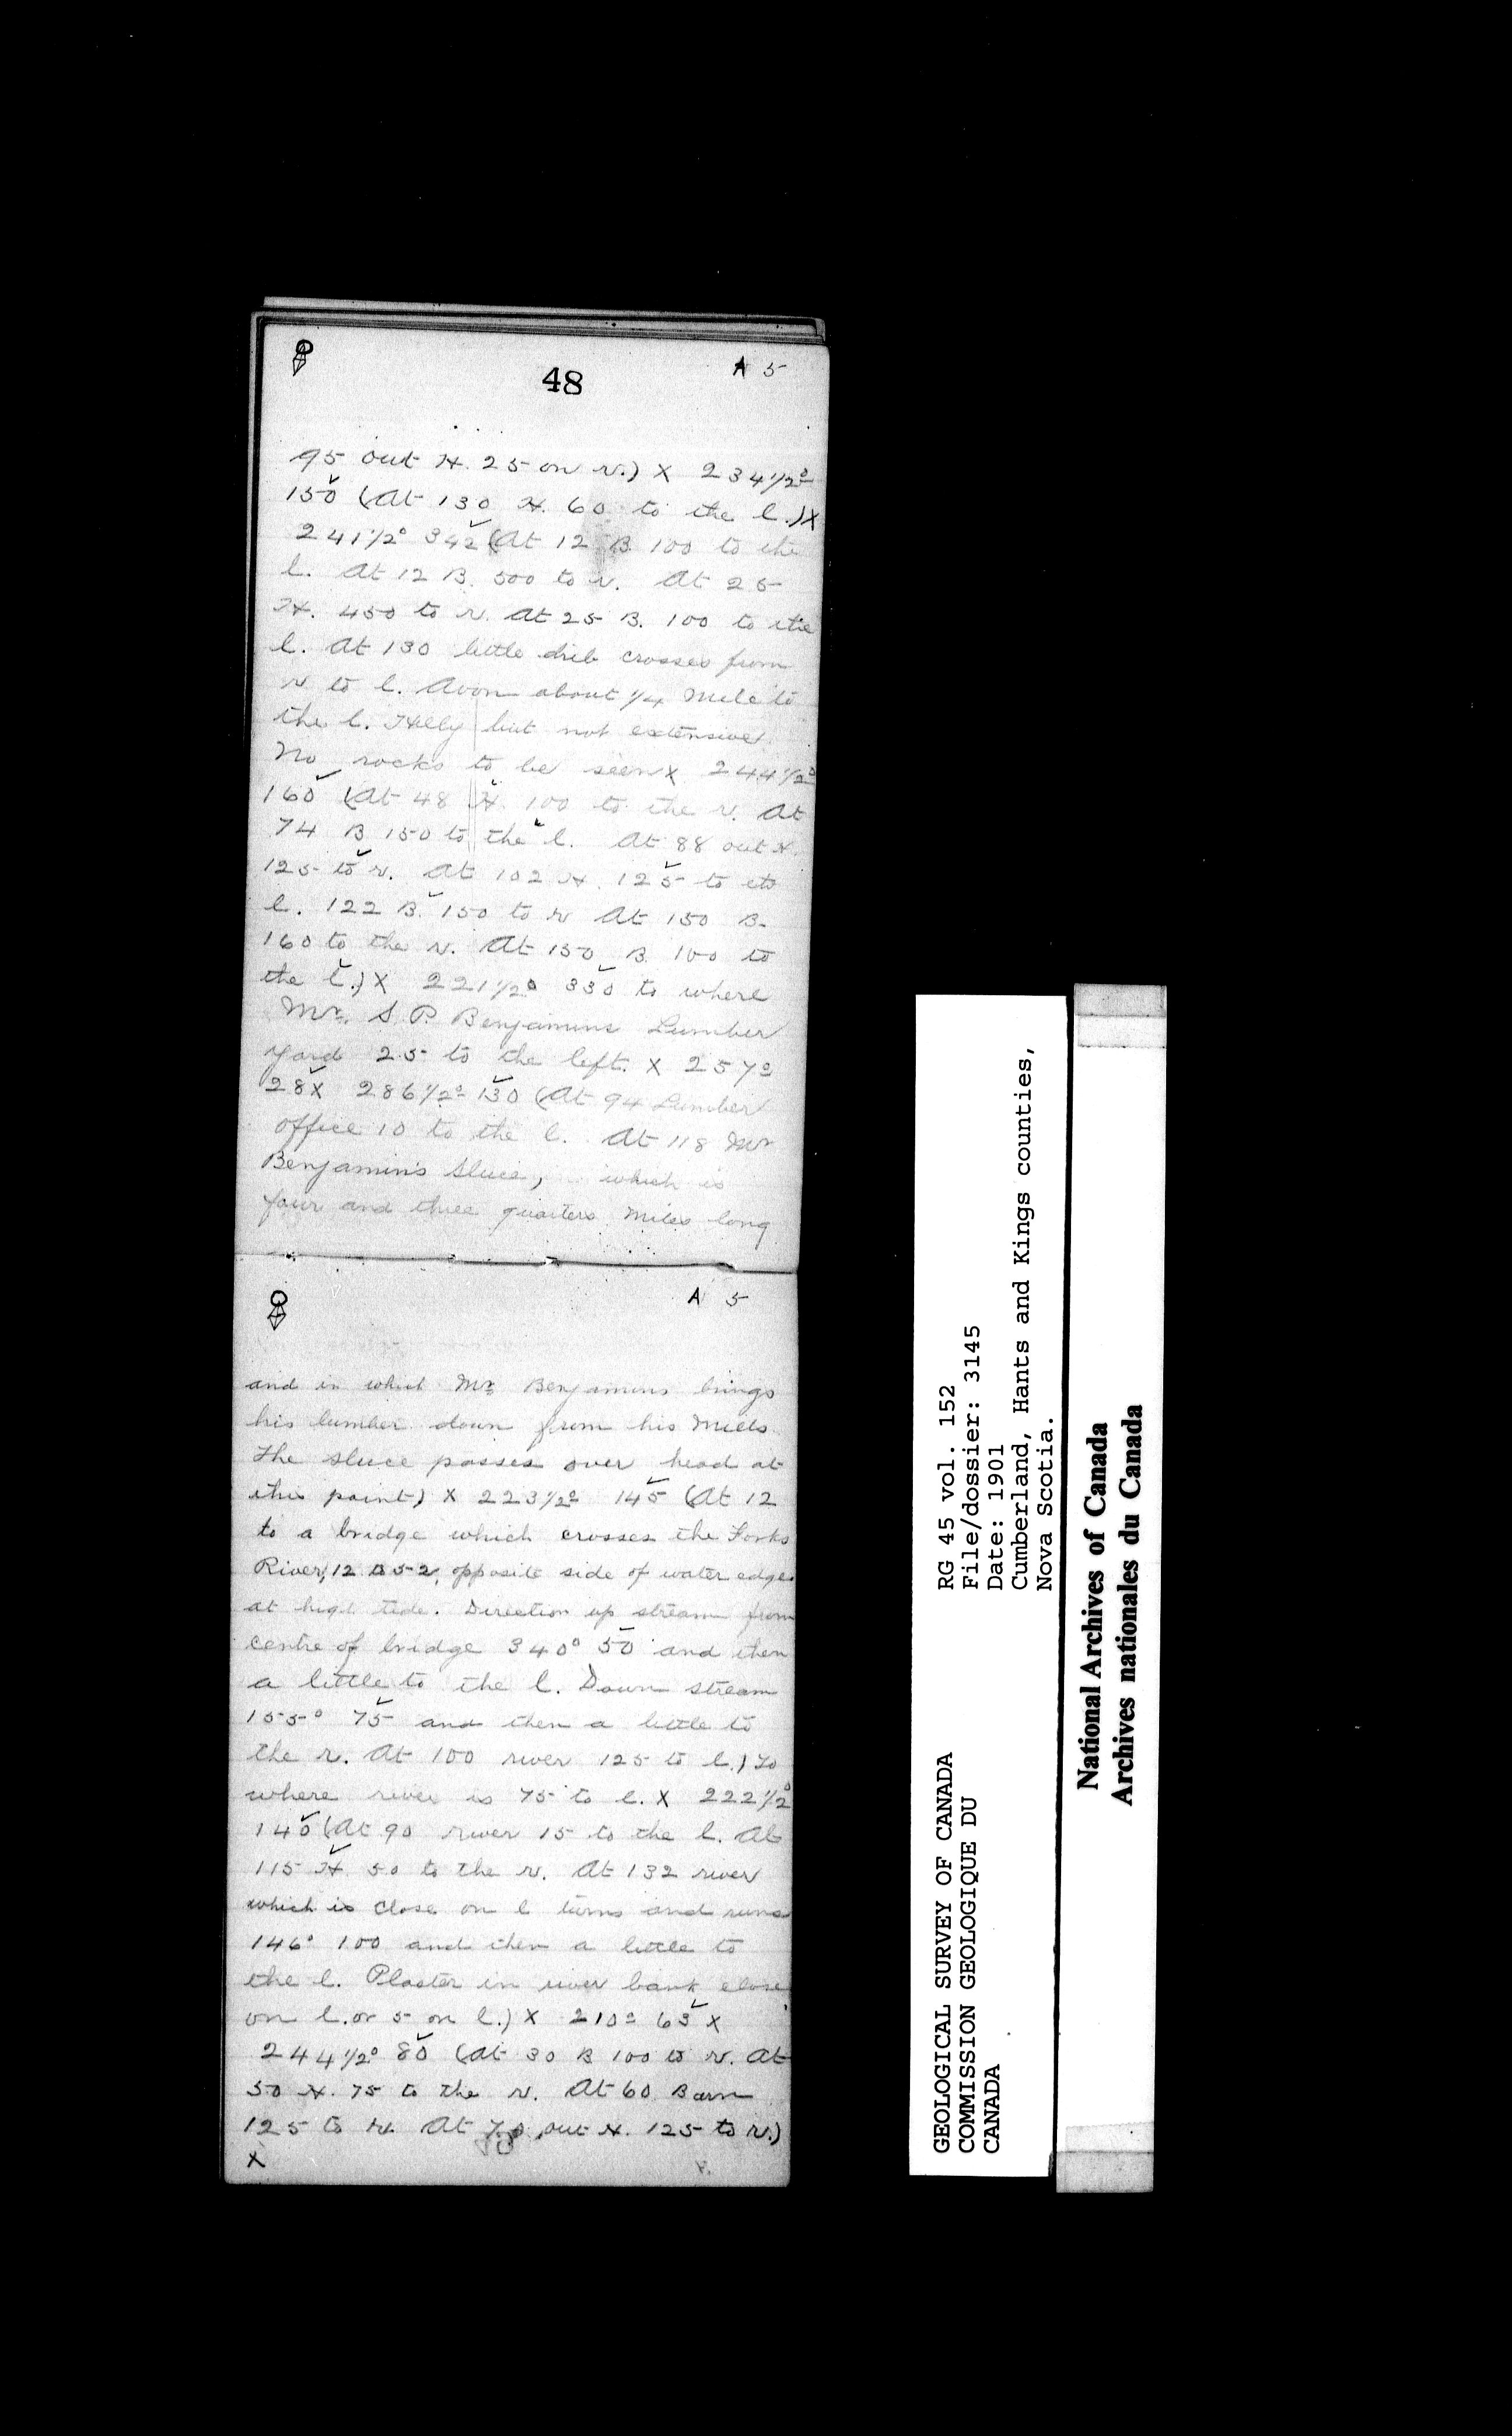 48
A 5
95 out H. 25 on r.) X 234 1/2°
150 (At 130 H. 60 to the l.) X
241 1/2° 342 (At 12 B. 100 to the
l. At 12 B. 500 to r. At 25
H. 450 to r. At 25 B. 100 to the
l. At 130 little drib crosses from
r to l. Avon about 1/4 Mile to
the l. Hilly but not extensive
No rocks to be seen X 244 1/2°
160 (At 48 H. 100 to the r. At
74 B 150 to the l. At 88 out H
125 to r. At 102 H. 125 to the
l. 122 B. 150 to r At 150 B.
160 to the r. At 150 B 100 to
the l.) X 221 1/2° 330 to where
Mr. S. P. Benjamins Lumber
yard 25 to the left. X 257°
28 X 286 1/2° 130 (At 94 Lumber
office 10 to the l. At 118 Mr
Benjamin's Sluice, which is
four and three quarters Miles long
A 5
and in which Mr. Benjamins brings
his lumber down from his Mills
The sluice passes over head at
this point) X 223 1/2° 145 (At 12
to a bridge which crosses the Forks
River, 12 to 52, opposite side of water edge
at high tide. Direction up stream from
centre of bridge 340° 50 and then
a little to the l. Down stream
155° 75 and then a little to
the r. At 100 river 125 to l.) To
where river is 75 to l. X 222 1/2°
140 (At 90 river 15 to the l. At
115 H. 50 to the r. At 132 river
which is close on l turns and runs
146° 100 and then a little to
the l. Plaster in river bank close
on l. or 5 on l.) X 210° 63 X
244 1/2° 80 (At 30 B 100 to r. At
50 H. 75 to the r. At 60 Barn
125 to r. At 70 out H. 125 to r.)
X
GEOLOGICAL SURVEY OF CANADA
COMMISSION GEOLOGIQUE DU
CANADA
RG 45 vol. 152
File/dossier: 3145
Date: 1901
Cumberland, Hants and Kings counties,
Nova Scotia.
National Archives of Canada
Archives nationales du Canada